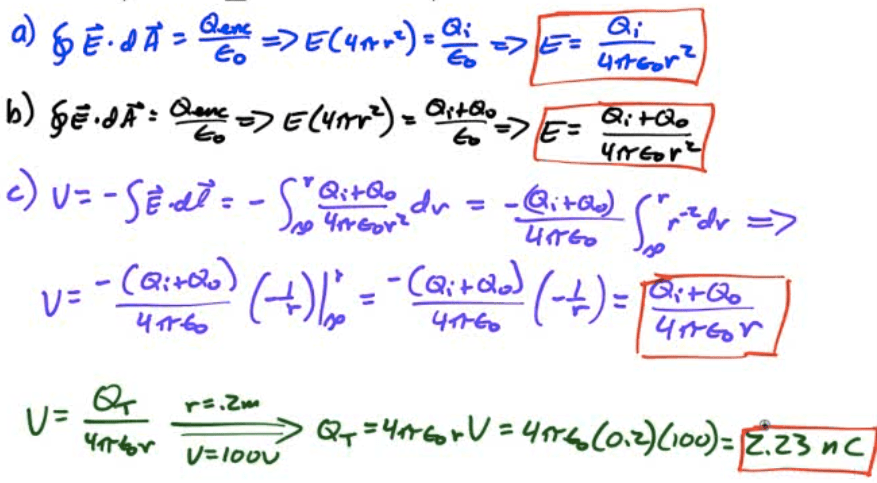 a) ∮E⃗·dA⃗ = Qenc/ϵ₀ => E(4πr²) = Qi/ϵ₀ => E = Qi/4πϵ₀r²
b) ∮E⃗·dA⃗ = Qenc/ϵ₀ => E(4πr²) = Qi+Qo/ϵ₀ => E = Qi+Qo/4πϵ₀r²
c) V = -∫E⃗·dl⃗ = -∫∞^r Qi+Qo/4πϵ₀r² dr = -(Qi+Qo)/4πϵ₀ ∫∞^r r⁻²dr =>
V = -(Qi+Qo)/4πϵ₀ (-1/r)|∞^r = -(Qi+Qo)/4πϵ₀ (-1/r) = Qi+Qo/4πϵ₀r
V = QT/4πϵ₀r r=.2m V=100V => QT = 4πϵ₀rV = 4πϵ₀(0.2)(100) = 2.23 nC